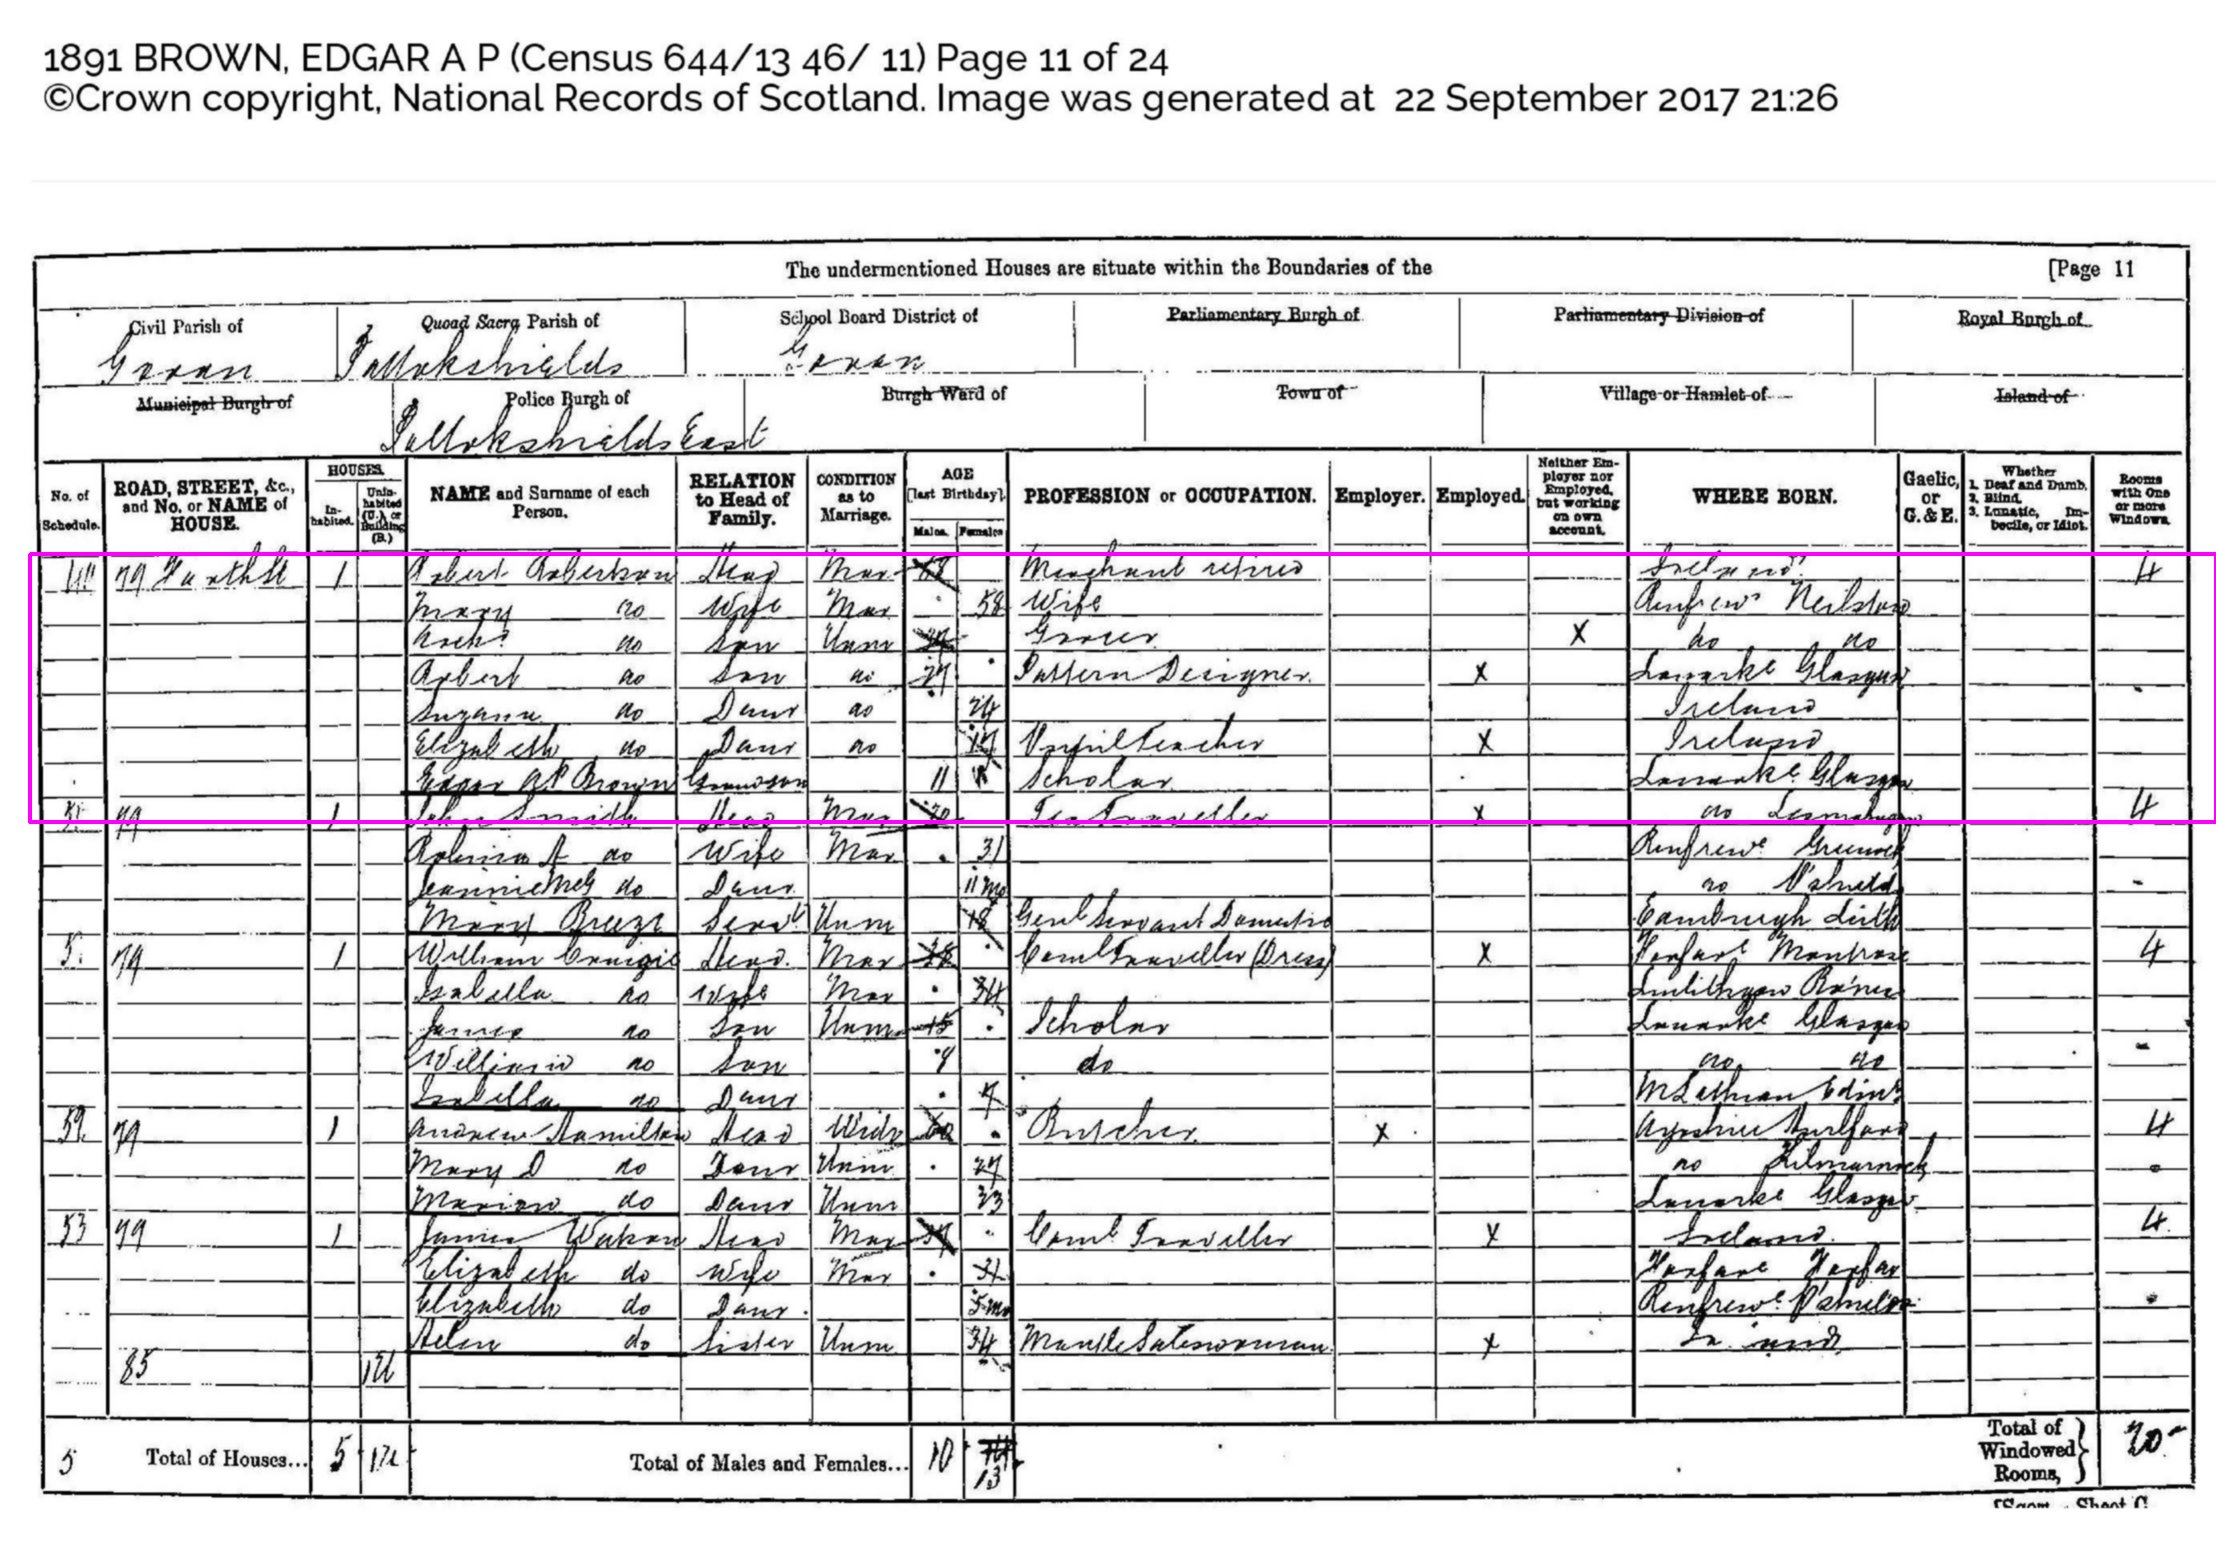 1891 BROWN, EDGAR A P (Census 644/13 46/ 11) Page 11 of 24
©Crown copyright, National Records of Scotland. Image was generated at 22 September 2017 21:26
The undermentioned Houses are situate within the Boundaries of the [Page 11
Civil Parish of Quoad Sacra Parish of School Board District of Parliamentary Burgh of Parliamentary Division of Royal Burgh of
Govan Pollokshields Govan
Municipal Burgh of Police Burgh of Burgh Ward of Town of Village or Hamlet of Island of
Pollokshields East
No. of Schedule. ROAD, STREET, &c., and No. or NAME of HOUSE. HOUSES. Inhabited. Uninhabited (U.) or Building (B.) NAME and Surname of each Person. RELATION to Head of Family. CONDITION as to Marriage. AGE [last Birthday]. Males. Females PROFESSION or OCCUPATION. Employer. Employed. Neither Employer nor Employed, but working on own account. WHERE BORN. Gaelic, or G. & E. Whether 1. Deaf and Dumb. 2. Blind. 3. Lunatic, Imbecile, or Idiot. Rooms with One or more Windows.
79 1 Robert Robertson Head Mar 68 Merchant retired Ireland 4
Mary do Wife Mar 58 Wife Renfrew Neilston
Archd do Son Unm Grocer X do do
Robert do Son do 27 Pattern Designer X Lanarks Glasgow
Suzann do Daur do 24 Ireland
Elizabeth do Daur do 19 Pupil Teacher X Ireland
Edgar A P Brown Grandson 11 Scholar Lanarks Glasgow
79 1 John Smith Head Mar 30 Tea Traveller X do Lesmahagow 4
Robina A do Wife Mar 31 Renfrews Greenock
Jeannie McG do Daur 11 mo do P'shields
Mary Breeze Servt Unm 18 Genl Servant Domestic Edinburgh Leith
79 1 William Craigie Head Mar 38 Coml Traveller (Dress) X Forfars Montrose 4
Isabella do Wife Mar 34 Linlithgow Bo'ness
James do Son Unm 15 Scholar Lanarks Glasgow
William do Son 9 do do do
Isabella do Daur 7 MLothian Edinr
52 79 1 Andrew Hamilton Head Widr 60 Butcher X Ayrshire 4
Mary D do Daur Unm 27 do Kilmarnock
Marion do Daur Unm 23 Lanarks Glasgow
53 79 1 James Watson Head Mar 37 Coml Traveller X Ireland 4
Elizabeth do Wife Mar 31 Forfars Forfar
Elizabeth do Daur 5 mo Renfrews P'shields
Helen do Sister Unm 34 Mantle Saleswoman X
85 1U
5 Total of Houses... 5 1U Total of Males and Females... 10 13 Total of Windowed Rooms, 20